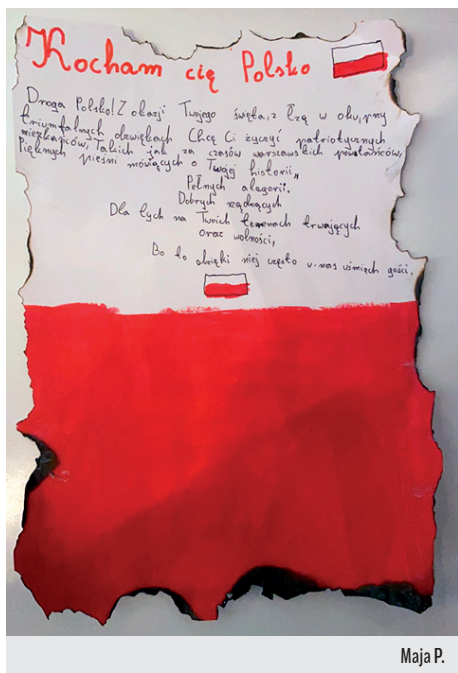 Kocham cię Polsko
Droga Polsko! Z okazji Twojego święta, z łzą w oku, przy
triumfalnych dźwiękach Chcę Ci życzyć patriotycznych
mieszkańców, Takich jak za czasów warszawskich powstańców,
Pięknych pieśni mówiących o Twojej historii,
Pełnych alegorii.
Dobrych rządzących
Dla tych na Twoich terenach trwających
oraz wolności,
Bo to dzięki niej często u nas uśmiech gości.
Maja P.